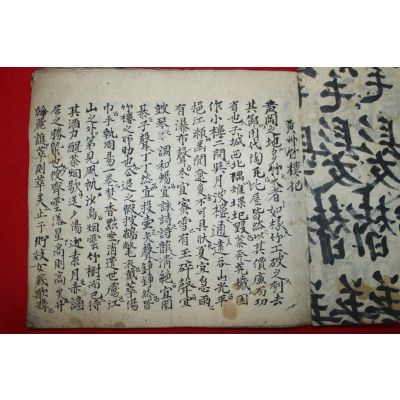 黃州竹樓記
黃岡之地多竹大者如椽竹工破之刳去
其節用代陶瓦比屋皆然以其價廉而功
省也子城西北隅雉堞圮毁蓁莽荒穢因
作小樓二間與月波樓通遠吞山光平
挹江瀨幽闃遼夐不可具狀夏宜急雨
有瀑布聲冬宜密雪有玉碎聲宜
鼓琴琴調和暢宜詠詩詩韻清絶宜圍
棋子聲丁丁然宜投壺矢聲錚錚然皆
竹樓之所助也公退之暇披鶴氅衣戴華陽
巾手執周易一卷焚香默坐消遣世慮江
山之外第見風帆沙鳥烟雲竹樹而已待
其酒力醒茶烟歇送夕陽迎素月亦謫
居之勝槩也彼齊雲落星高則高矣井
幹麗譙華則華矣止于貯妓女藏歌舞